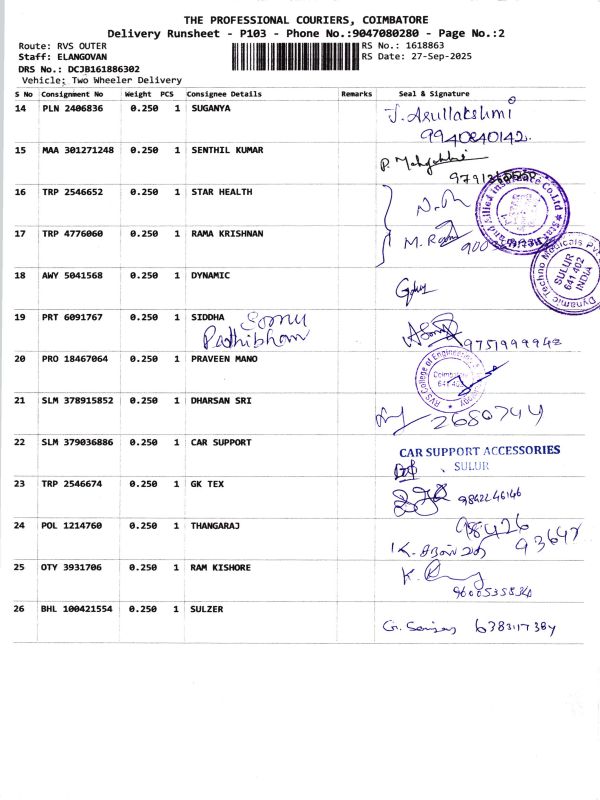 THE PROFESSIONAL COURIERS, COIMBATORE
Delivery Runsheet - P103 - Phone No.:9047080280 - Page No.:2
Route: RVS OUTER
RS No.: 1618863
Staff: ELANGOVAN
RS Date: 27-Sep-2025
DRS No.: DCJB161886302
Vehicle: Two Wheeler Delivery
S No Consignment No Weight PCS Consignee Details Remarks Seal & Signature
14 PLN 2406836 0.250 1 SUGANYA J. Asullakshmi
9940840142.
15 MAA 301271248 0.250 1 SENTHIL KUMAR
16 TRP 2546652 0.250 1 STAR HEALTH
Star Allied Insurance Co.Ltd
17 TRP 4776060 0.250 1 RAMA KRISHNAN M.
Dynamic Techno Medicals Pvt
SULUR
641 402
INDIA
18 AWY 5041568 0.250 1 DYNAMIC
19 PRT 6091767 0.250 1 SIDDHA Sonu
Padhibham
9751999942
20 PRO 18467064 0.250 1 PRAVEEN MANO
RVS College of Engineering
Coimbatore
641 402
21 SLM 378915852 0.250 1 DHARSAN SRI 2680744
22 SLM 379036886 0.250 1 CAR SUPPORT CAR SUPPORT ACCESSORIES
SULUR
23 TRP 2546674 0.250 1 GK TEX 9842246146
24 POL 1214760 0.250 1 THANGARAJ 98426
93647
25 OTY 3931706 0.250 1 RAM KISHORE K.
9600535834
26 BHL 100421554 0.250 1 SULZER G. Sanjay 638317384